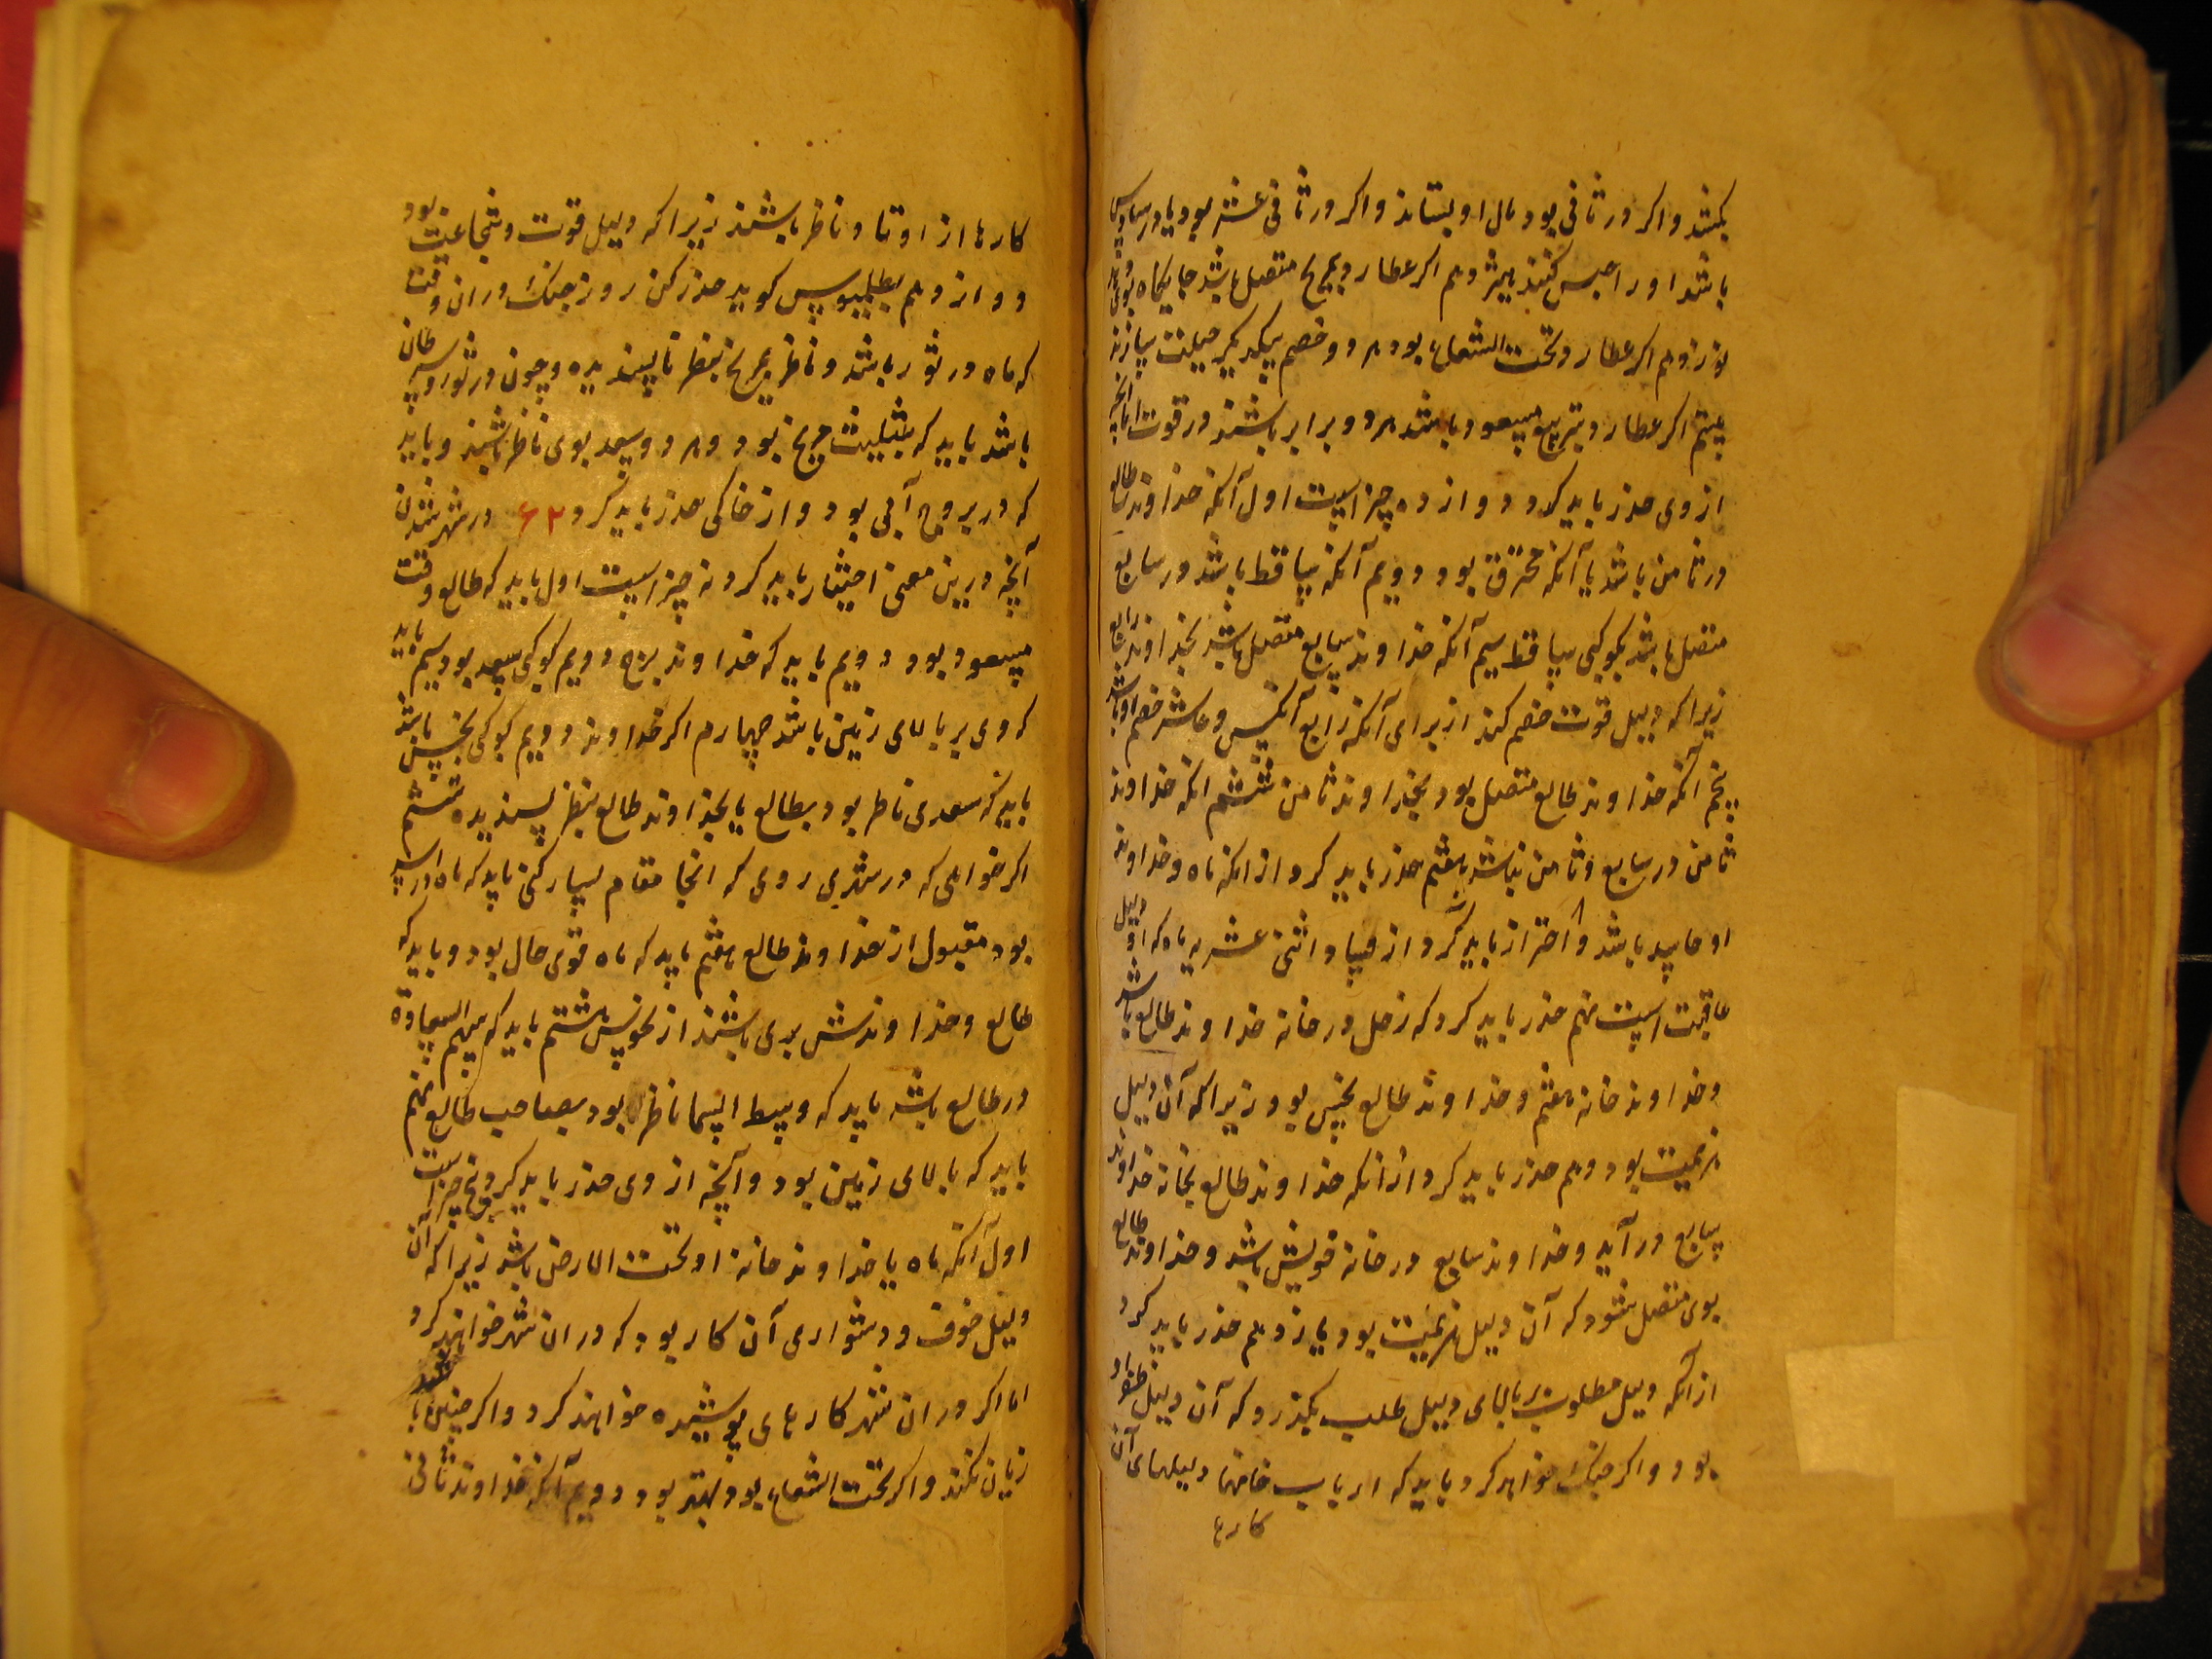 بکشد و اکر در ثانی بود مال او بستاند و اکر در ثانی عشر بود یا در سادس
باشد او را حبس کنند هیژدهم اکر عطارد بمریخ متصل باشد جایکاه
نوزدهم اکر عطارد تحت الشعاع بود هر دو خصم بیکدیکر حیلت سازند
بیستم اکر عطارد بتربیع مسعود باشد هر دو برابر باشند در قوت اما آنچه
از وی حذر باید کرد دوازده چیز است اول آنکه خداوند طالع
در ثامن باشد یا آنکه محترق بود دویم آنکه ساقط باشد در سابع
متصل باشد بکوکبی ساقط سیم آنکه خداوند سابع متصل باشد بخداوند رابع
زیرا که دلیل قوت خصم کند از برای آنکه رابع آنکس و عاشر خصم او باشد
پنجم آنکه خداوند طالع متصل بود بخداوند ثامن ششم انکه خداوند
ثامن در سابع و ثامن نباشد هفتم حذر باید کرد از انکه ماه و خداوند
او فاسد باشد و احتراز باید کرد از فساد اثنی عشریه ماه که او دلیل
عاقبت است نهم حذر باید کرد که زحل در خانه خداوند طالع باشد
و خداوند خانه هفتم و خداوند طالع نحس بود زیرا که آن دلیل
هزیمت بود دهم حذر باید کرد از انکه خداوند طالع بخانه خداوند
سابع در آید و خداوند سابع در خانه خویش باشد و خداوند طالع
بوی متصل شود که آن دلیل هزیمت بود یازدهم حذر باید کرد
از انکه دلیل مطلوب بر بالای دلیل طلب بکذرد که آن دلیل ظفر او
بود و اکر جنک خواهد کرد باید که ارباب خانها دلیلهای آن
کارها
کارها از اوتاد ناظر باشند زیرا که دلیل قوت و شجاعت بود
دوازدهم بطلمیوس کوید حذر کن روز جنک در ان وقت
که ماه در ثور باشد و ناظر بمریخ بنظر ناپسندیده و چون در ثور و سرطان
باشد باید که بتثلیث مریخ بود و هر دو سعد بوی ناظر باشند و باید
که در بروج آبی بود و از خاکی حذر باید کرد ۶۲ در شهر شدن
آنچه درین معنی اختیار باید کرد نه چیز است اول باید که طالع وقت
مسعود بود دویم باید که خداوند برج دویم کوکبی سعد بود سیم باید
که وی بر بالای زمین باشد چهارم اکر خداوند دویم کوکبی نحس باشد
باید که سعدی ناظر بود بطالع یا بخداوند طالع بنظر پسندیده ششم
اکر خواهی که در شهری روی که انجا مقام بسیار کنی باید که ماه در اسد
بود مقبول از خداوند طالع هفتم باید که ماه قوی حال بود و باید که
طالع و خداوندش بری باشند از نحوس هشتم باید که سهم السعاده
در طالع باشد باید که وسط السما ناظر بود بصاحب طالع نهم
باید که بالای زمین بود و آنچه از وی حذر باید کرد پنج چیز است
اول آنکه ماه یا خداوند خانه او تحت الارض باشد زیرا که آن
دلیل خوف و دشواری آن کار بود که در ان شهر خواهد کرد
اما اکر در ان شهر کارهای پوشیده خواهند کرد و اکر چنین
زیان نکند و اکر تحت الشعاع بود بهتر بود دویم آنکه خداوند ثانی